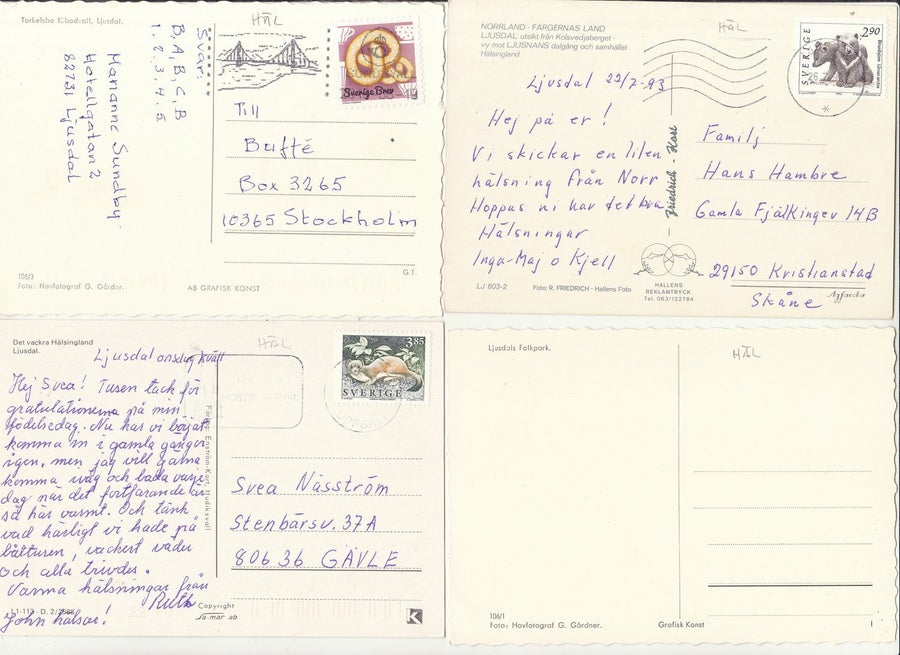 Torkelsbo fäbodvall, Ljusdal.
HÄL
Svar:
B, A, B, C, B
1. 2. 3. 4. 5.
Marianne Sundby
Hotellgatan 2
82731 Ljusdal
Sverige Brev
Till
Buffé
Box 3265
10365 Stockholm
G.T.
106/3
Foto: Hovfotograf G. Gärdner.
AB GRAFISK KONST
NORRLAND - FÄRGERNAS LAND
LJUSDAL, utsikt från Kolsvedjaberget -
vy mot LJUSNANS dalgång och samhället
Hälsingland
HÄL
SVERIGE
2.90
Ljusdal 22/7-93
Hej på er!
Vi skickar en liten
hälsning från Norr
Hoppas ni har det bra
Hälsningar
Inga-Maj o Kjell
Friedrich - Kort
Familj
Hans Hambre
Gamla Fjälkingev 14B
29150 Kristianstad
Skåne
LJ 603-2
Foto: R. FRIEDRICH - Hallens Foto
HALLENS
REKLAMTRYCK
Tel. 063/122784
Agfacolor
Det vackra Hälsingland
Ljusdal.
HÄL
3.85
SVERIGE
Ljusdal onsdag kväll
Hej Svea! Tusen tack för
gratulationerna på min
födelsedag. Nu har vi börjat
komma in i gamla gänget
igen, men jag vill gärna
komma iväg och bada varje
dag när det fortfarande är
så här varmt. Och tänk
vad härligt vi hade på
båtturen, vackert väder
och alla trivdes.
Varma hälsningar från
Ruth
John hälsar!
Förlag: Enström-Kort, Hudiksvall
Svea Näsström
Stenbärsv. 37A
80636 GÄVLE
L1-113 - D.
Copyright
sa-mar ab
K
Ljusdals Folkpark.
HÄL
106/1
Foto: Hovfotograf G. Gärdner.
Grafisk Konst
I